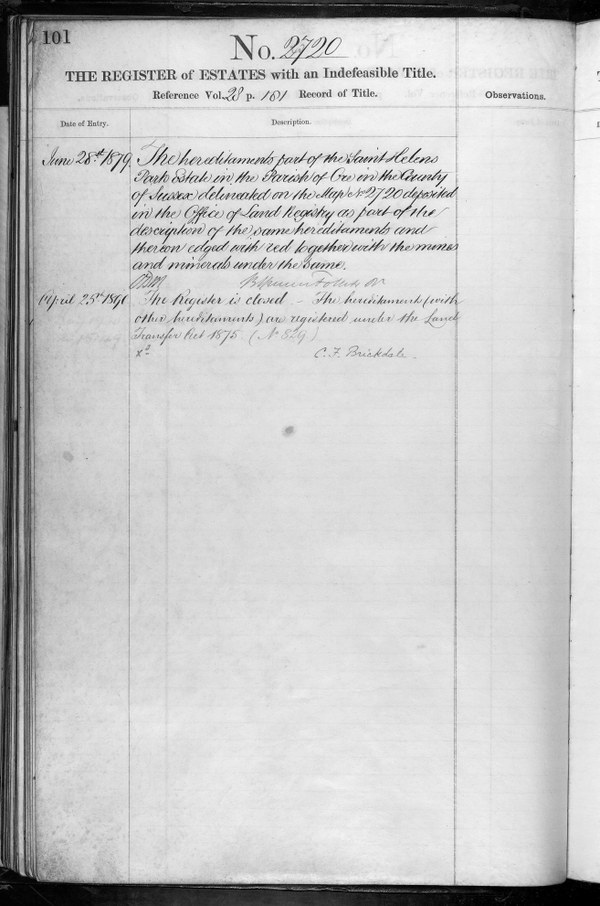 101
No. 2720
THE REGISTER of ESTATES with an Indefeasible Title.
Reference Vol. 28 p. 101 Record of Title.
Observations.
Date of Entry.
Description.
June 28th 1879. The hereditaments part of the Saint Helens
Park Estate in the Parish of Ore in the County
of Sussex delineated on the Map No 2720 deposited
in the Office of Land Registry as part of the
description of the same hereditaments and
thereon edged with red together with the mines
and minerals under the same.
April 25th 1890 The Register is closed – The hereditaments (with
other hereditaments) are registered under the Land
Transfer Act 1875 (No 829)
C. F. Brickdale.